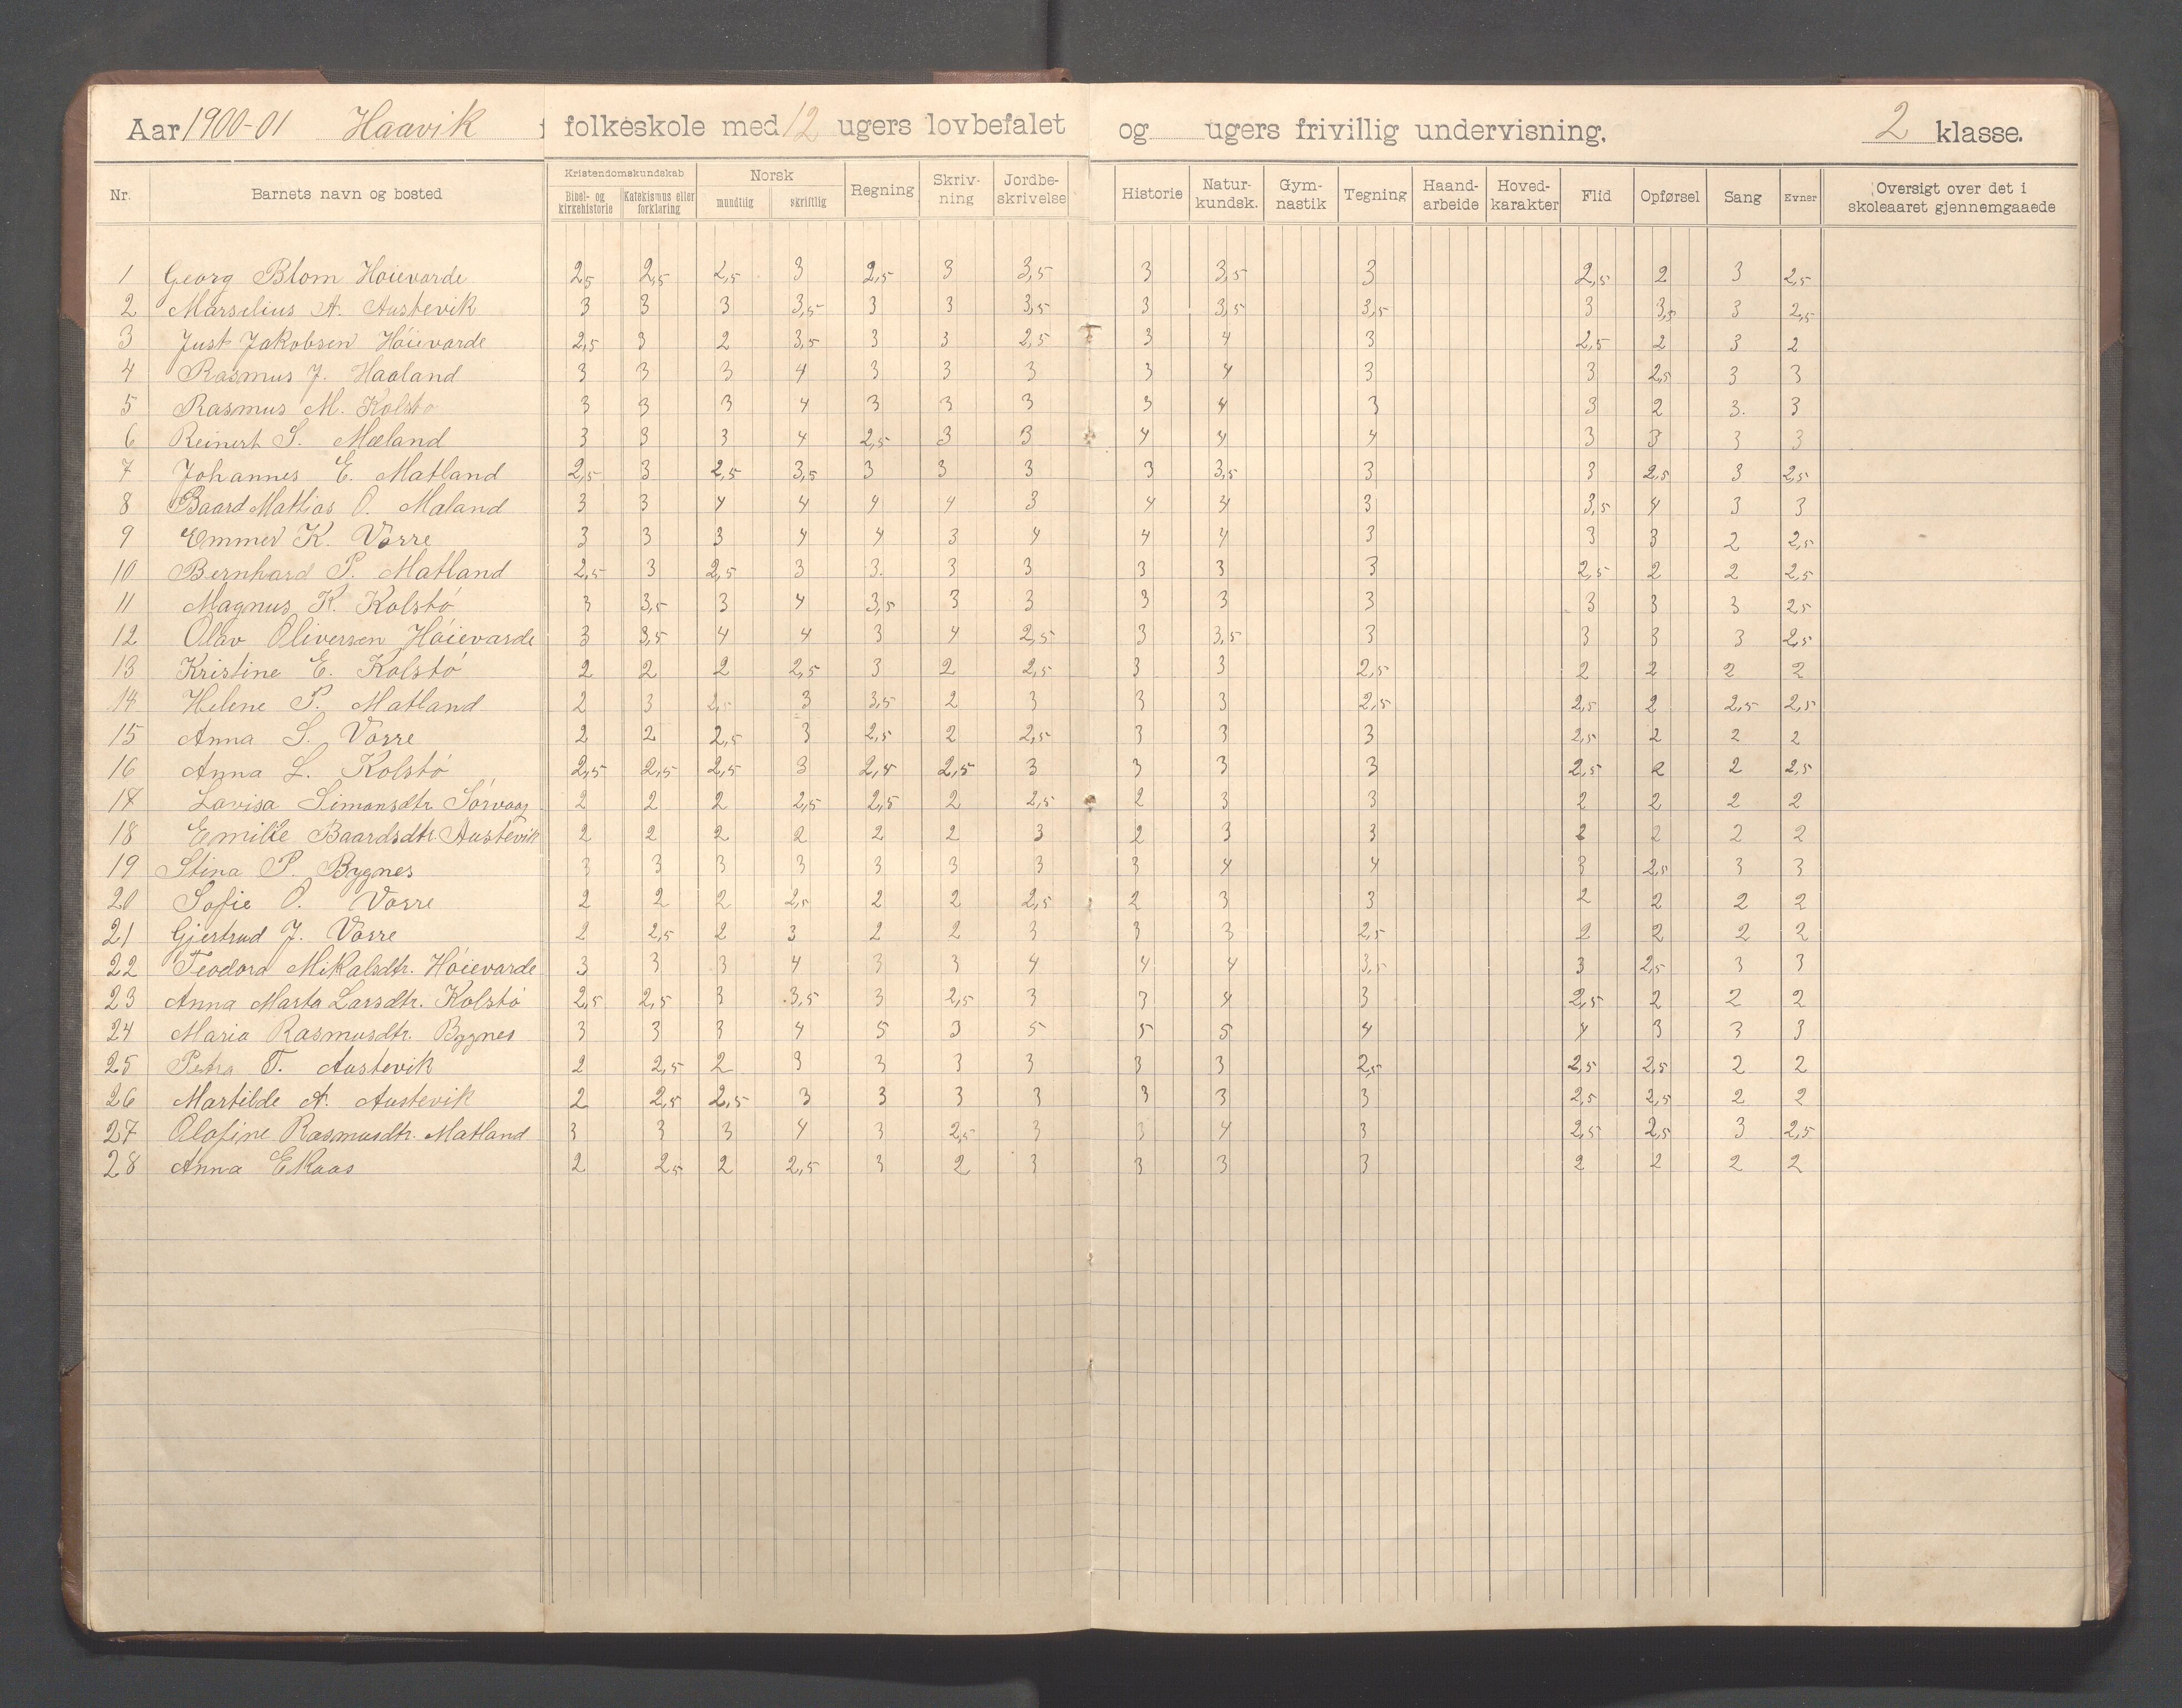 Aar 1900-01 Haavik folkeskole med 12 ugers lovbefalet og ugers frivillig undervisning. 2 klasse.
Nr. Barnets navn og bosted Kristendomskundskab Bibel- og kirkehistorie Katekismus eller forklaring Norsk mundtlig skriftlig Regning Skriv-ning Jordbe-skrivelse Historie Natur-kundsk. Gym-nastik Tegning Haand-arbeide Hoved-karakter Flid Opførsel Sang Evner Oversigt over det i skoleaaret gjennemgaaede
1 Georg Blom Høievarde 2,5 2,5 2,5 3 2,5 3 3,5 3 3,5 3 2,5 2 3 2,5
2 Marselius A. Austevik 3 3 3 3,5 3 3 3,5 3 3,5 3,5 3 3,5 3 2,5
3 Just Jakobsen Høievarde 2,5 3 2 3,5 3 3 2,5 3 4 3 2,5 2 3 2
4 Rasmus J. Haaland 3 3 3 4 3 3 3 3 4 3 3 2,5 3 3
5 Rasmus M. Kolstø 3 3 3 4 3 3 3 3 4 3 3 2 3. 3
6 Reinert S. Mæland 3 3 3 4 2,5 3 3 4 4 4 3 3 3 3
7 Johannes E. Matland 2,5 3 2,5 3,5 3 3 3 3 3,5 3 3 2,5 3 2,5
8 Baard Mattias O. Maland 3 3 4 4 4 4 3 4 4 3 3,5 4 3 3
9 Emmer K. Vorre 3 3 3 4 4 3 4 4 4 3 3 3 2 2,5
10 Bernhard P. Matland 2,5 3 2,5 3 3. 3 3 3 3 3 2,5 2 2 2,5
11 Magnus K. Kolstø 3 3,5 3 4 3,5 3 3 3 3 3 3 3 3 2,5
12 Olav Oliversen Høievarde 3 3,5 4 4 3 4 2,5 3 3,5 3 3 3 3 2,5
13 Kristine E. Kolstø 2 2 2 2,5 3 2 2,5 3 3 2,5 2 2 2 2
14 Helene P. Matland 2 3 2,5 3 3,5 2 3 3 3 2,5 2,5 2 2,5 2,5
15 Anna S. Vorre 2 2 2,5 3 2,5 2 2,5 3 3 3 2,5 2 2 2
16 Anna L. Kolstø 2,5 2,5 2,5 3 2,5 2,5 3 3 3 3 2,5 2 2 2,5
17 Lovisa Simonsdtr. Sørvaag 2 2 2 2,5 2,5 2 2,5 2 3 3 2 2 2 2
18 Emilie Baardsdtr. Austevik 2 2 2 2 2 2 3 2 3 3 2 2 2 2
19 Stina P. Bygnes 3 3 3 3 3 3 3 3 4 4 3 2,5 3 3
20 Sofie O. Vorre 2 2 2 2,5 2 2 2,5 2 3 3 2 2 2 2
21 Gjertrud J. Vorre 2 2,5 2 3 2 2 3 3 3 2,5 2 2 2 2
22 Teodora Mikalsdtr. Høievarde 3 3 3 4 3 3 4 4 4 3,5 3 2,5 3 3
23 Anna Marta Larsdtr. Kolstø 2,5 2,5 3 3,5 3 2,5 3 3 4 3 2,5 2 2 2
24 Maria Rasmusdtr. Bygnes 3 3 3 4 5 3 5 5 5 4 4 3 3 3
25 Petra T. Austevik 2 2,5 2 3 3 3 3 3 3 2,5 2,5 2,5 2 2
26 Martilde A. Austevik 2 2,5 2,5 3 3 3 3 3 3 3 2,5 2,5 2 2
27 Olafine Rasmusdtr. Matland 3 3 3 4 3 2,5 3 3 4 3 2,5 2,5 3 2,5
28 Anna Ekaas 2 2,5 2 2,5 3 2 3 3 3 3 2 2 2 2